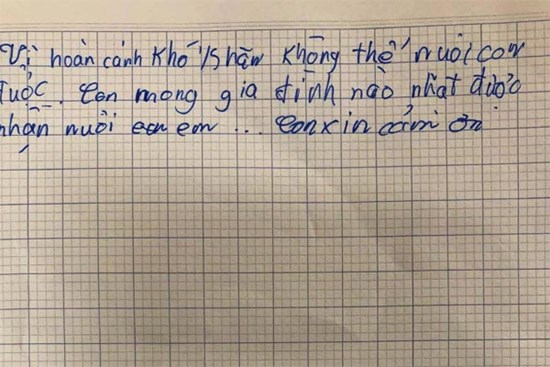 Vì hoàn cảnh khó khăn không thể nuôi con
được. Con mong gia đình nào nhặt được
nhận nuôi con em ... Con xin cảm ơn